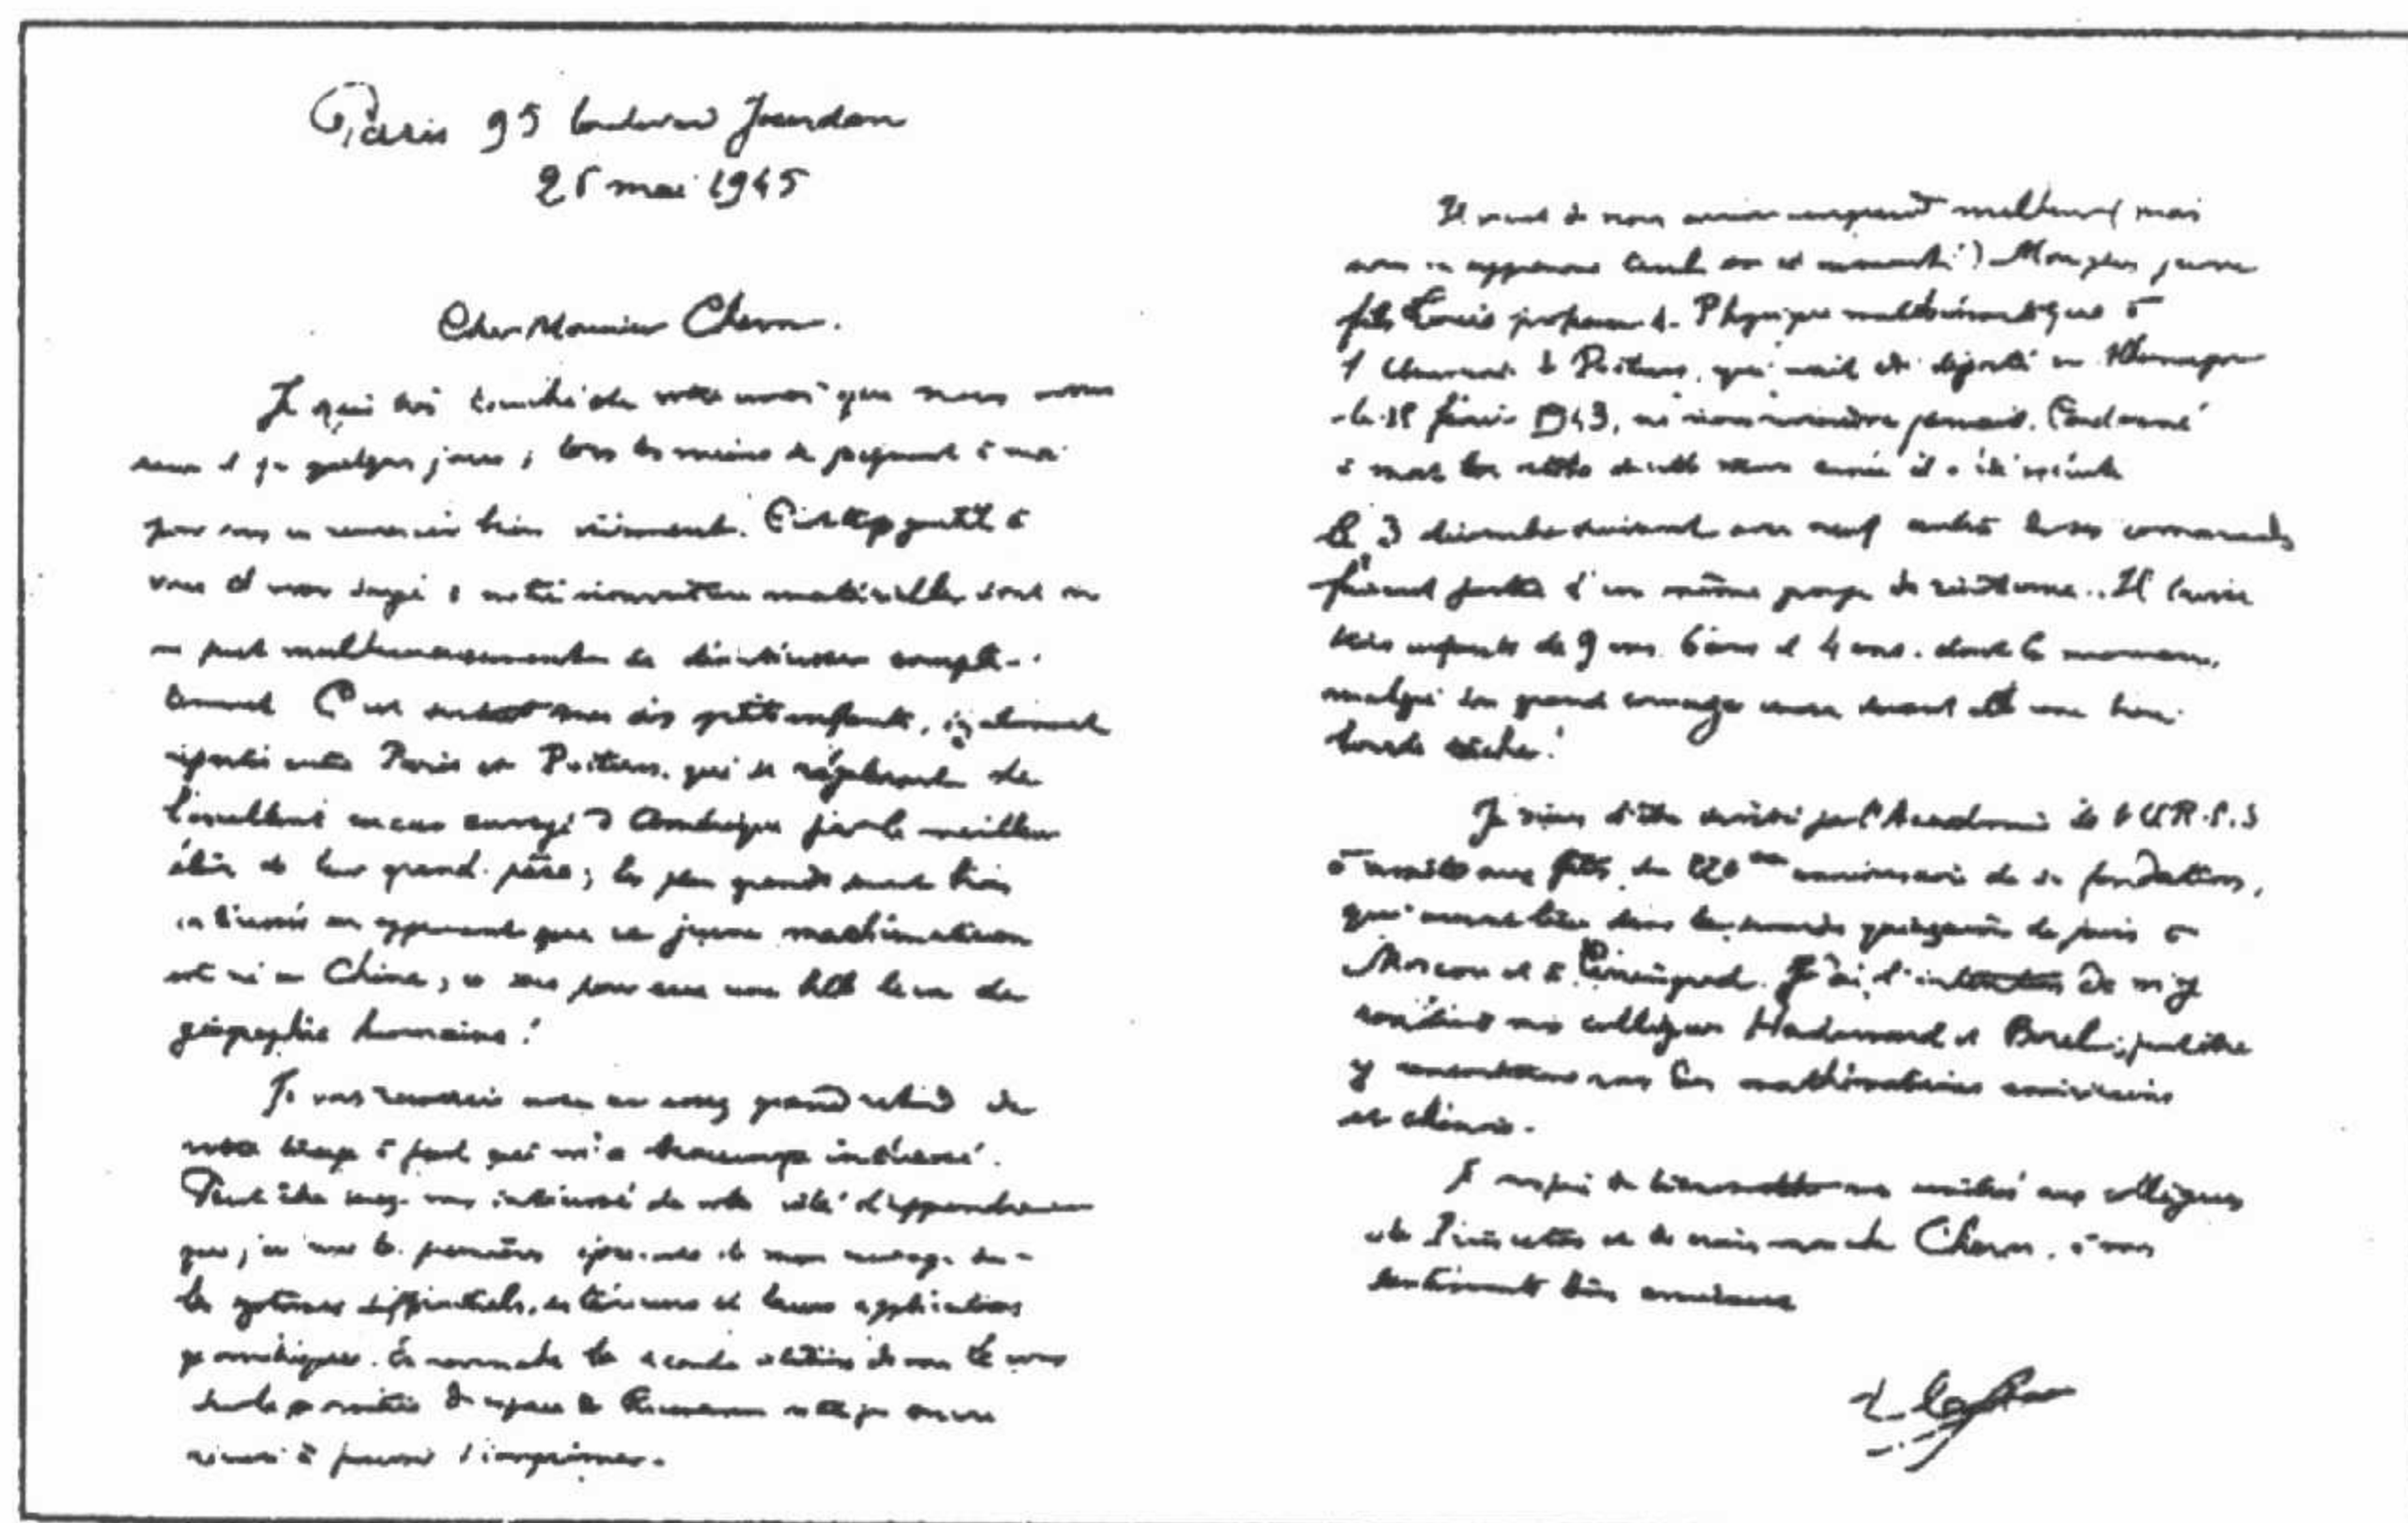 Paris 95 boulevard Jourdan
25 mai 1945
Cher Monsieur Chern.
Je suis très touché de votre envoi que nous avons
reçu il y a quelques jours; tous les miens se joignent à moi
pour vous en remercier bien vivement. C'est trop gentil à
vous d'avoir songé à notre nourriture matérielle dont on
ne peut malheureusement se désintéresser complè-
tement. Ce sont surtout mes six petits enfants, également
répartis entre Paris et Poitiers, qui se régaleront de
l'excellent cacao envoyé d'Amérique par le meilleur
élève de leur grand-père; les plus grands seront bien
intéressés en apprenant que ce jeune mathématicien
est né en Chine; ce sera pour eux une belle leçon de
géographie humaine!
Je vous remercie avec un assez grand retard de
votre tirage à part qui m'a beaucoup intéressé.
Peut être serez-vous intéressé de votre côté d'apprendre
que j'ai eu les premières épreuves de mon ouvrage sur
les systèmes différentiels extérieurs et leurs applications
géométriques. En revanche la seconde édition de mon livre
sur la géométrie des espaces de Riemann n'a pas encore
réussi à pouvoir s'imprimer.
Il vient de nous arriver un grand malheur (mais
nous en apprenons seulement) Mon plus jeune
fils Louis professeur de Physique mathématique à
l'Université de Poitiers, qui avait été déporté en Allemagne
le février 1943, ne nous reviendra jamais. Condamné
à mort il a été exécuté
le 3 décembre suivant avec neuf autres de ses camarades
faisant partie d'un même groupe de résistance. Il laisse
trois enfants de 9 ans 6 ans et 4 ans. dont la maman,
malgré son grand courage aura devant elle une bien
lourde tâche!
Je viens d'être invité par l'Académie de l'U.R.S.S
à assister aux fêtes du 220ème anniversaire de sa fondation,
qui auront lieu dans la seconde quinzaine de juin à
Moscou et à Léningrad. J'ai l'intention de m'y
rendre avec mes collègues Hadamard et Borel; peut-être
y rencontrerons-nous des mathématiciens américains
et chinois.
Je vous prie de transmettre mes amitiés aux collègues
de Princeton et de croire, mon cher Chern, à mes
sentiments bien amicaux
E. Cartan